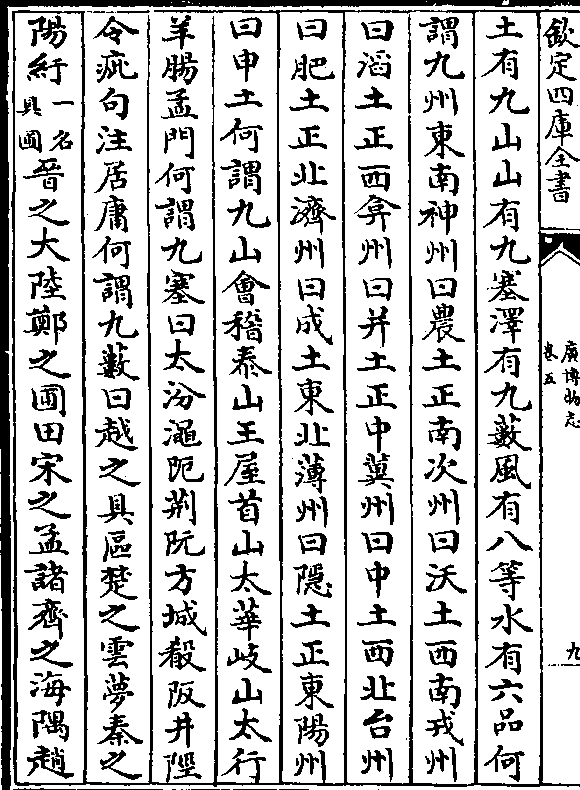 欽定四庫全書
廣博物志
卷五
九
土有九山山有九塞澤有九藪風有八等水有六品何
謂九州東南神州曰農土正南次州曰沃土西南戎州
曰滔土正西弇州曰并土正中冀州曰中土西北台州
曰肥土正北濟州曰成土東北薄州曰隱土正東陽州
曰申土何謂九山會稽泰山王屋首山太華岐山太行
羊腸孟門何謂九塞曰太汾澠阨荆阮方城殽阪井陘
令疵句注居庸何謂九藪曰越之具區楚之雲夢秦之
陽紆一名具圃晉之大陸鄭之圃田宋之孟諸齊之海隅趙